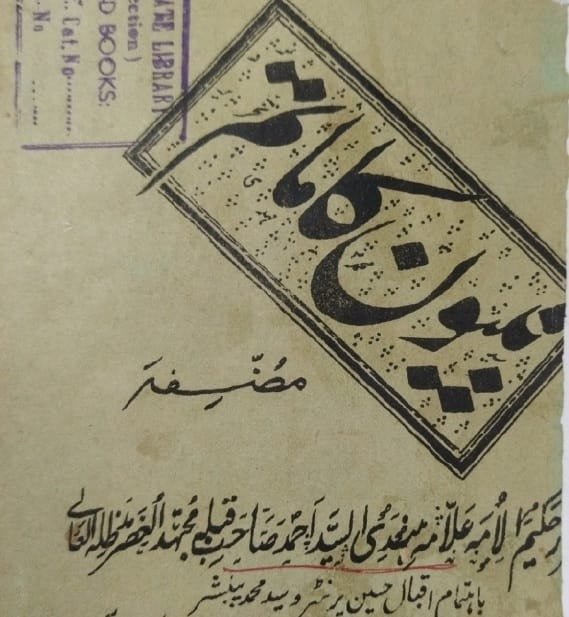 ATE LIBRARY
ection )
D BOOKS:
. Cat. No..........
. No ......
کا ماتم
مصنفہ
حکیم الامہ علامہ ہندی السید احمد صاحب قبلہ مجتہد العصر مدظلہ العالی
باہتمام اقبال حسین پرنٹر و سید محمد پبلشر